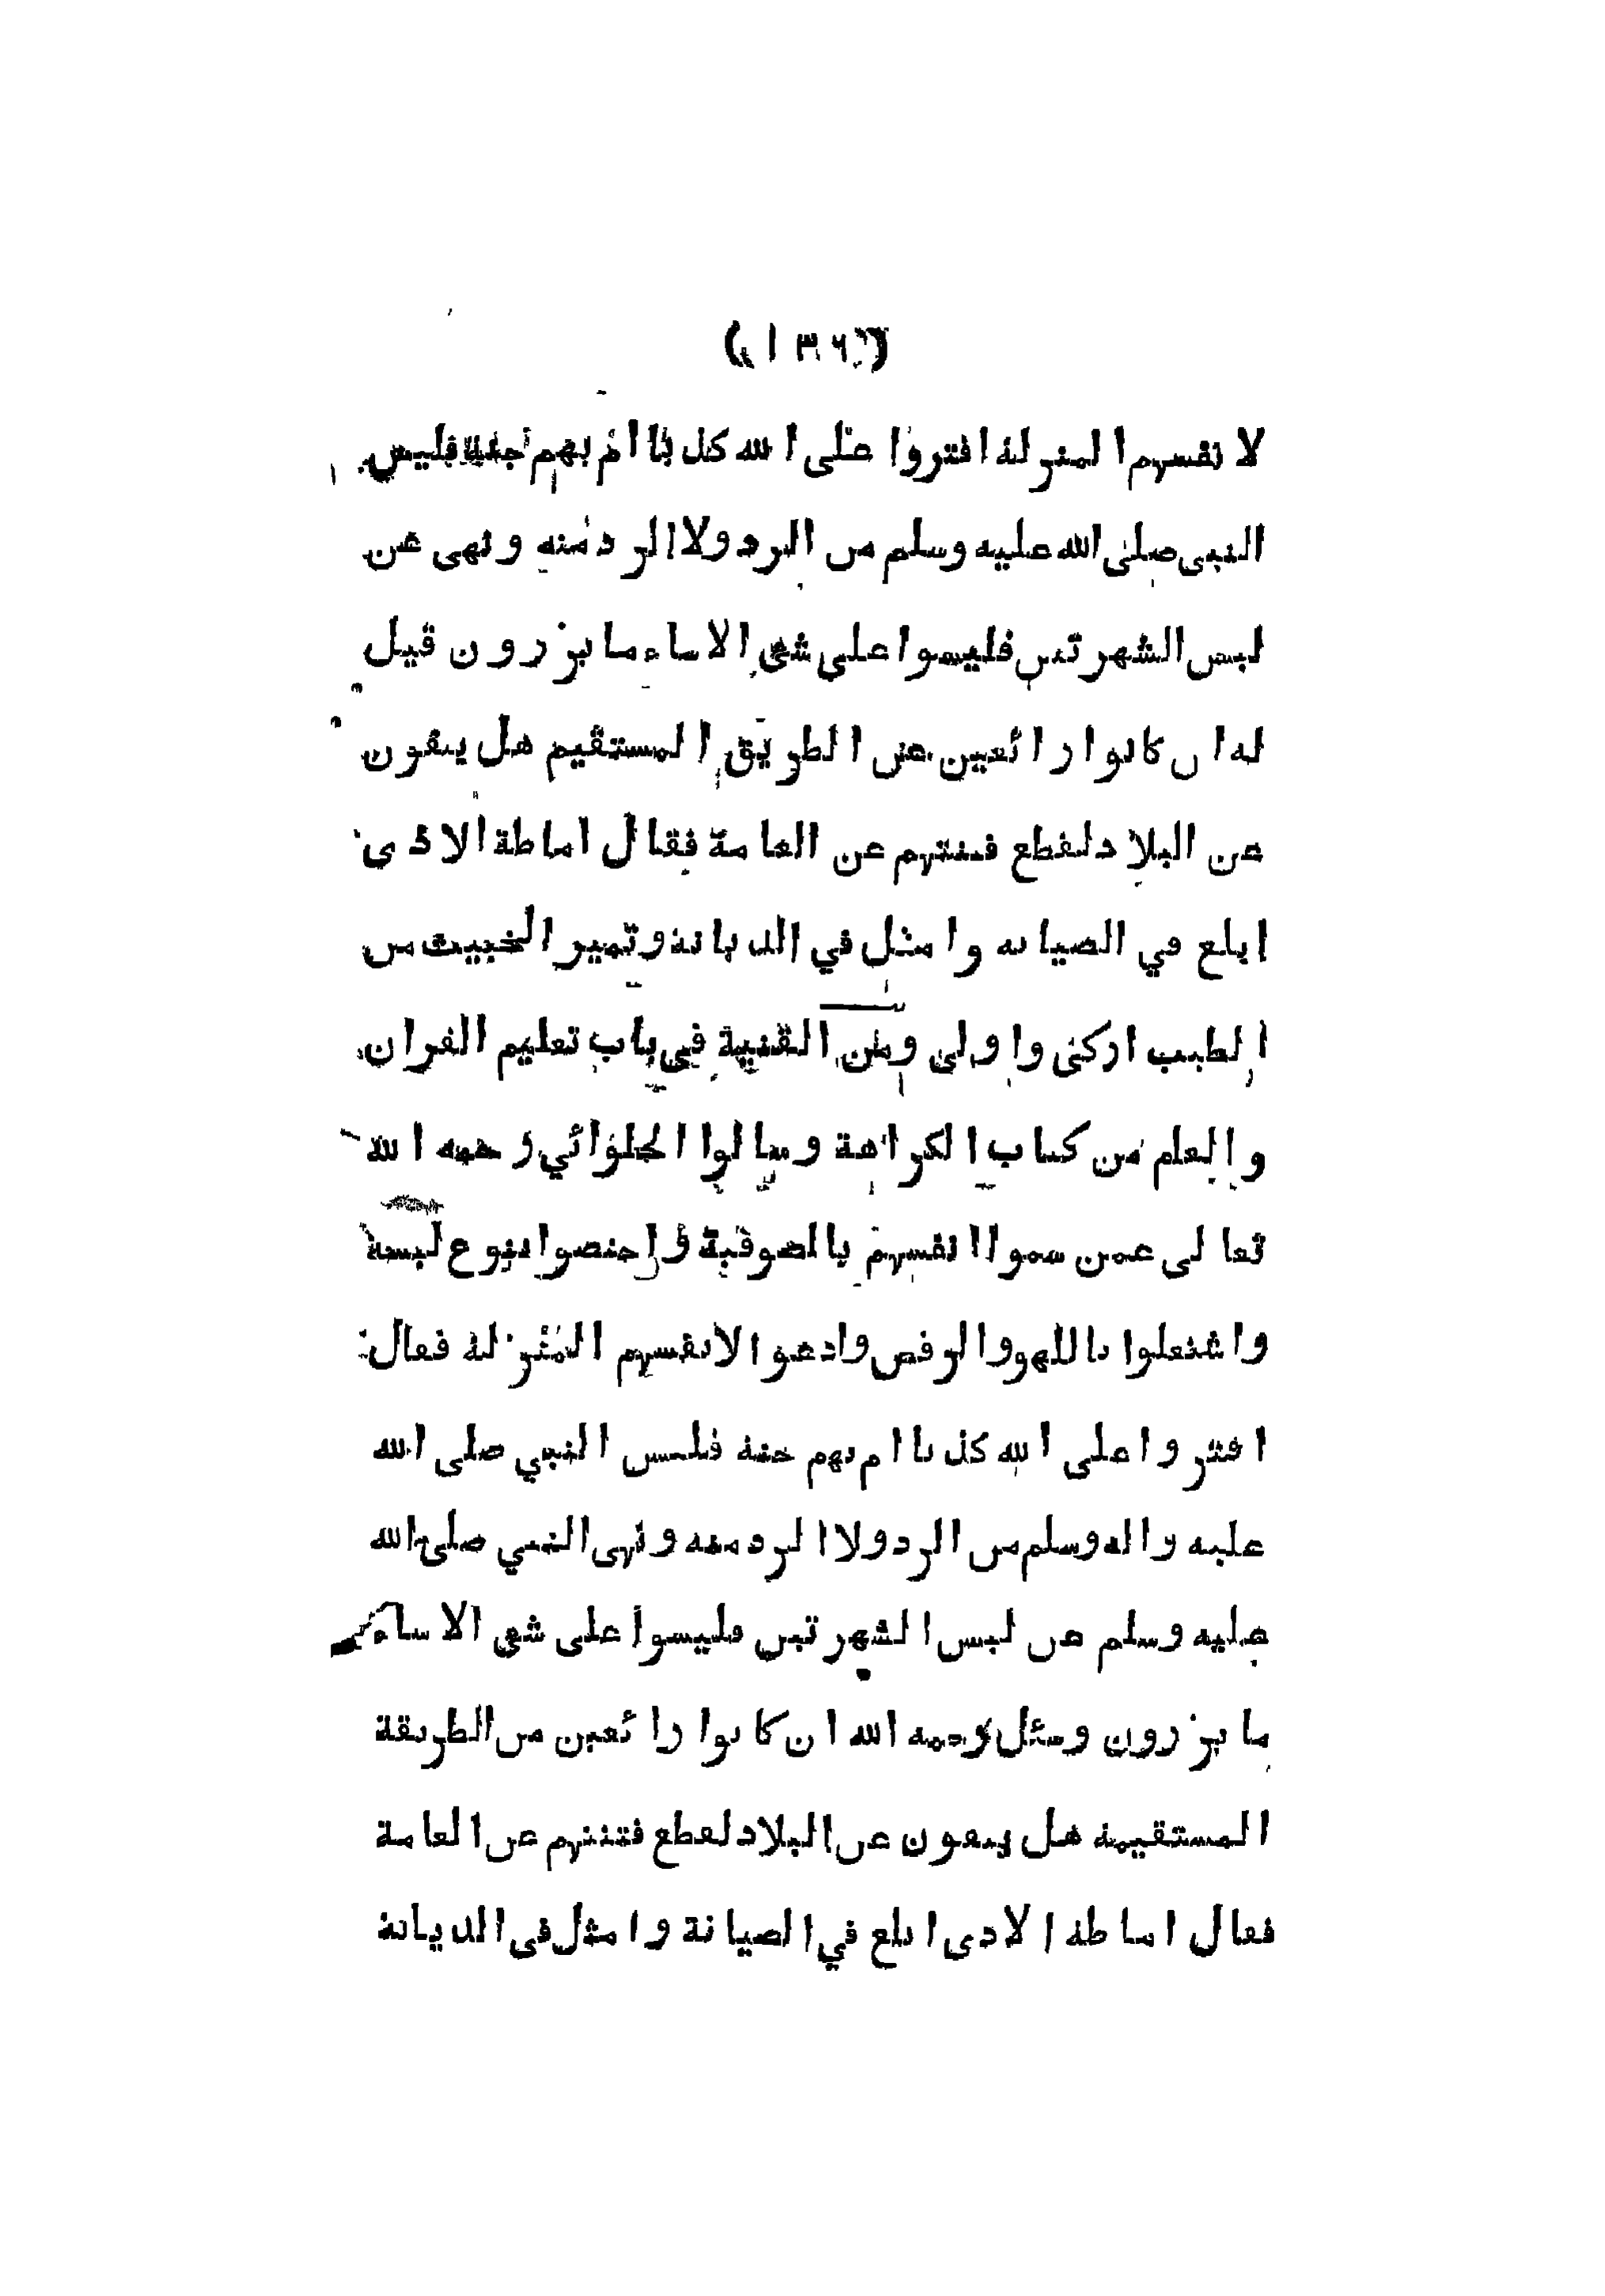 (١٣٦)
لا نفسهم المنزلة افتروا على الله كذبا ام بهم جنة فليس
النبى صلى الله عليه وسلم من الرد ولا الرد منه و نهى عن
لبس الشهرتين فليسوا على شئ الا ساء ما يزرون قيل
له ان كانوا زائغين عن الطريق المستقيم هل ينفون
عن البلاد لقطع فتنتهم عن العامة فقال اماطة الاذى
ابلغ في الصيانه وا مثل في الديانة و تميز الخبيث من
الطيب ازكى وا ولى ومن القنية فى باب تعليم القران
والعلم من كتاب الكراهة وسالوا الحلوائي رحمه الله
تعالى عمن سموا انفسهم بالصوفية واختصوا بنوع لبسة
واشتغلوا باللهو والرقص وادعوا لانفسهم المنزلة فقال
افتروا على الله كذبا ام بهم جنة فليس النبي صلى الله
عليه واله وسلم من الرد ولا الرد منه ونهى النبي صلى الله
عليه وسلم عن لبس الشهرتين فليسوا على شئ الا ساء
ما يزرون وسئل رحمه الله ان كانوا زائغين من الطريقة
المستقيمة هل ينفون عن البلاد لقطع فتنتهم عن العامة
فقال اماطة الاذى ابلغ في الصيانة وا مثل فى الديانة